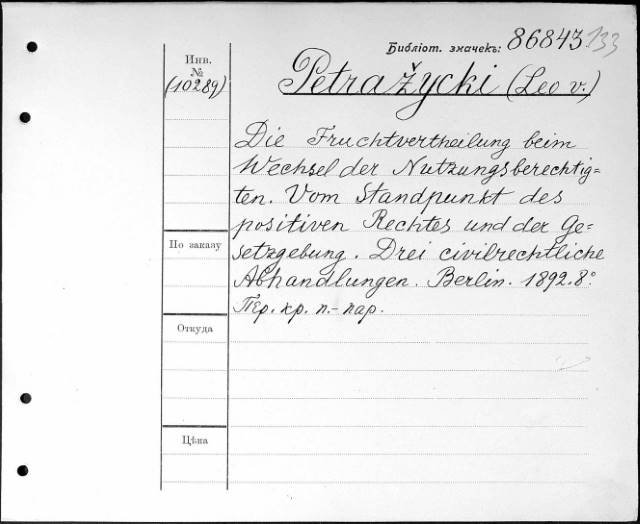 Библіот. значекъ: 86843 133
Инв.
№
(10289)
Petražycki (Leo v.)
Die Fruchtvertheilung beim
Wechsel der Nutzungsberechtig=
ten. Vom Standpunkt des
positiven Rechtes und der Ge=
setzgebung. Drei civilrechtliche
Abhandlungen. Berlin. 1892. 8°.
Пер. хр. п.-пар.
По заказу
Откуда
Цѣна